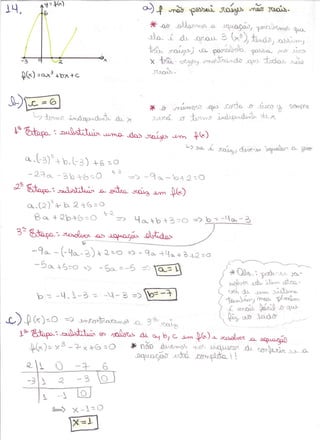 14.
y = f(x)
6
-3 2 x
f(x) = ax³ + bx + c
a) f não possui raízes não reais.
* ao olharmos a equação, percebemos que
ela é de grau 3 (x³), tendo, assim,
três raízes, a parábola passa no eixo
x três vezes, mostrando que todas são
reais.
b) c = 6
↳ termo independente de x
* o número que corta o eixo y sempre
será o termo independente de x
1ª Etapa: substituir uma das raízes em f(x)
↳ se é raiz, devemos igualar a zero
a.(-3)³ + b.(-3) + 6 = 0
-27a - 3b + 6 = 0 => -9a - b + 2 = 0
2ª Etapa: substituir a outra raiz em f(x)
a.(2)³ + b.2 + 6 = 0
8a + 2b + 6 = 0 => 4a + b + 3 = 0 => b = -4a - 3
3ª Etapa: resolver as equações obtidas
-9a - (-4a - 3) + 2 = 0 => -9a + 4a + 3 + 2 = 0
-5a + 5 = 0 => -5a = -5 => a = 1
b = -4.1 - 3 = -4 - 3 => b = -7
* Obs.: pode-se
resolver
através de um sistema
também, mas
é mais fácil o que
fiz ao lado
c) f(x) = 0 => encontraremos a 3ª raiz
1ª Etapa: substituir os valores de a, b, c em f(x) e resolver a equação
f(x) = x³ - 7x + 6 = 0 * não devemos nos esquecer de conferir se a
equação está completa!!
2 | 1 0 -7 6
-3 | 1 2 -3 0
1 -1 0
=> x - 1 = 0
x = 1